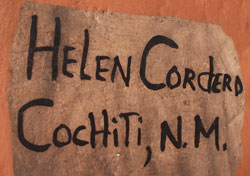 HELEN CORDERO
COCHITI, N.M.